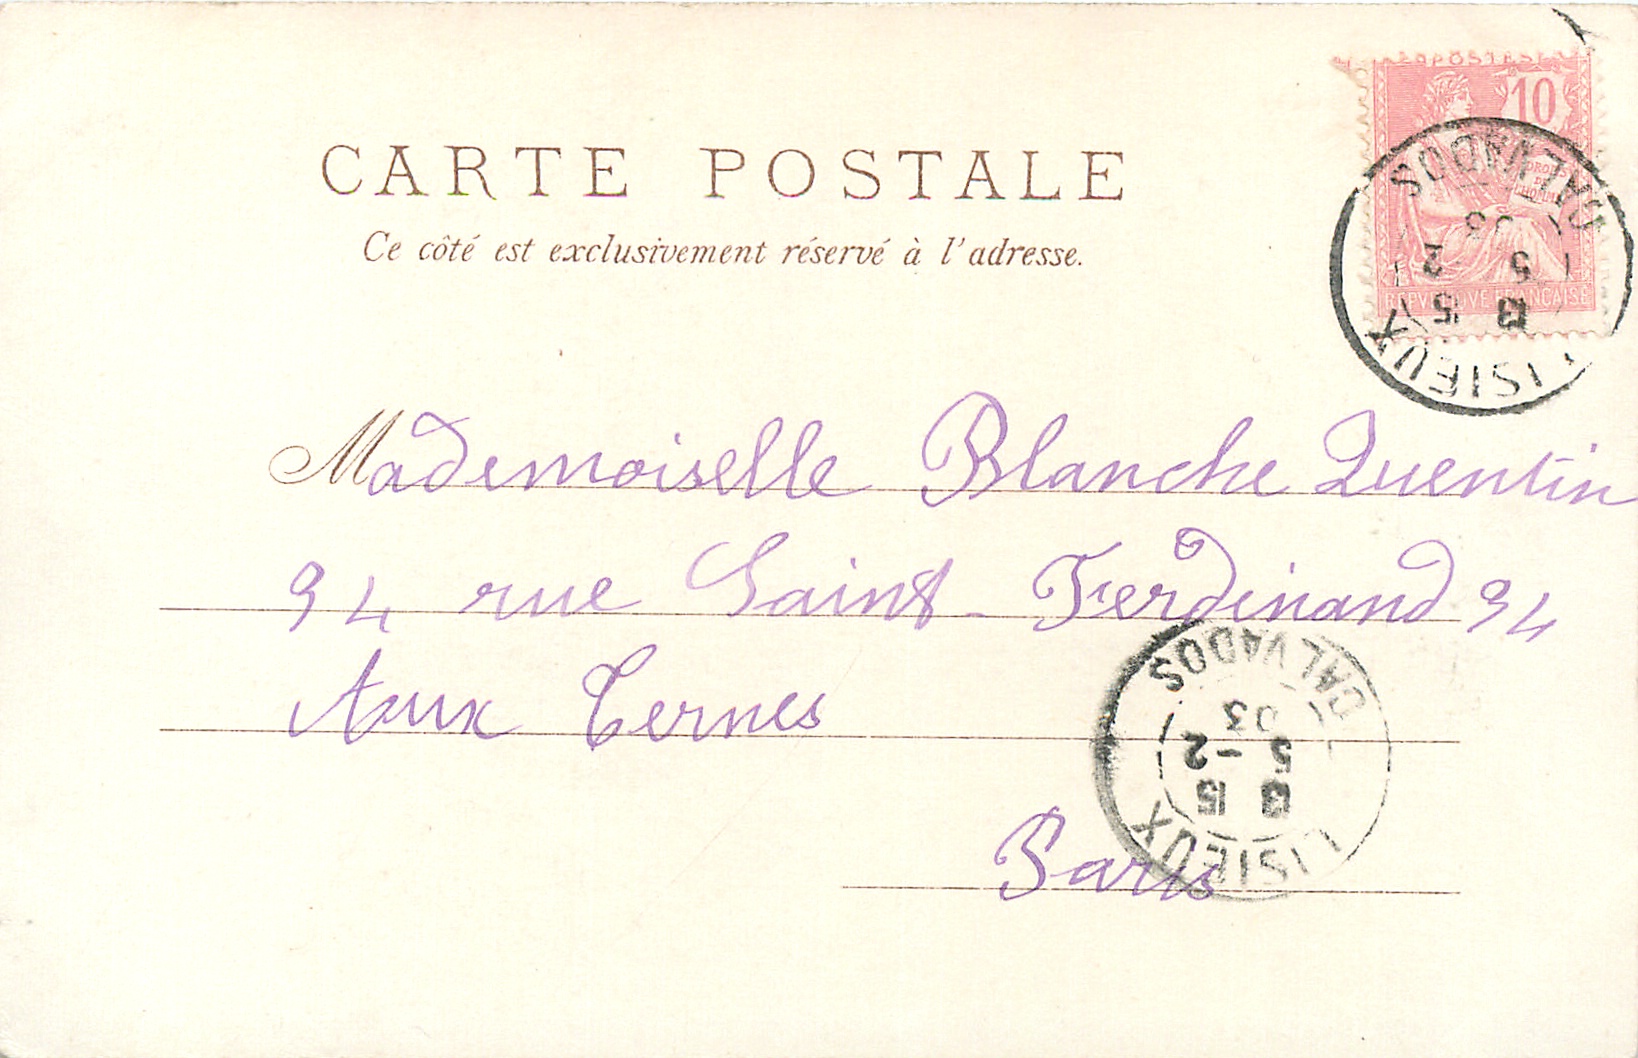 POSTES
10
DROITS
DE
L'HOMME
REPUBLIQUE FRANÇAISE
CARTE POSTALE
Ce côté est exclusivement réservé à l'adresse.
LISIEUX
13 15
5 2
03
CALVADOS
Mademoiselle Blanche Quentin
94 rue Saint-Ferdinand 94
Aux Ternes
Paris
LISIEUX
13 15
5-2
03
CALVADOS